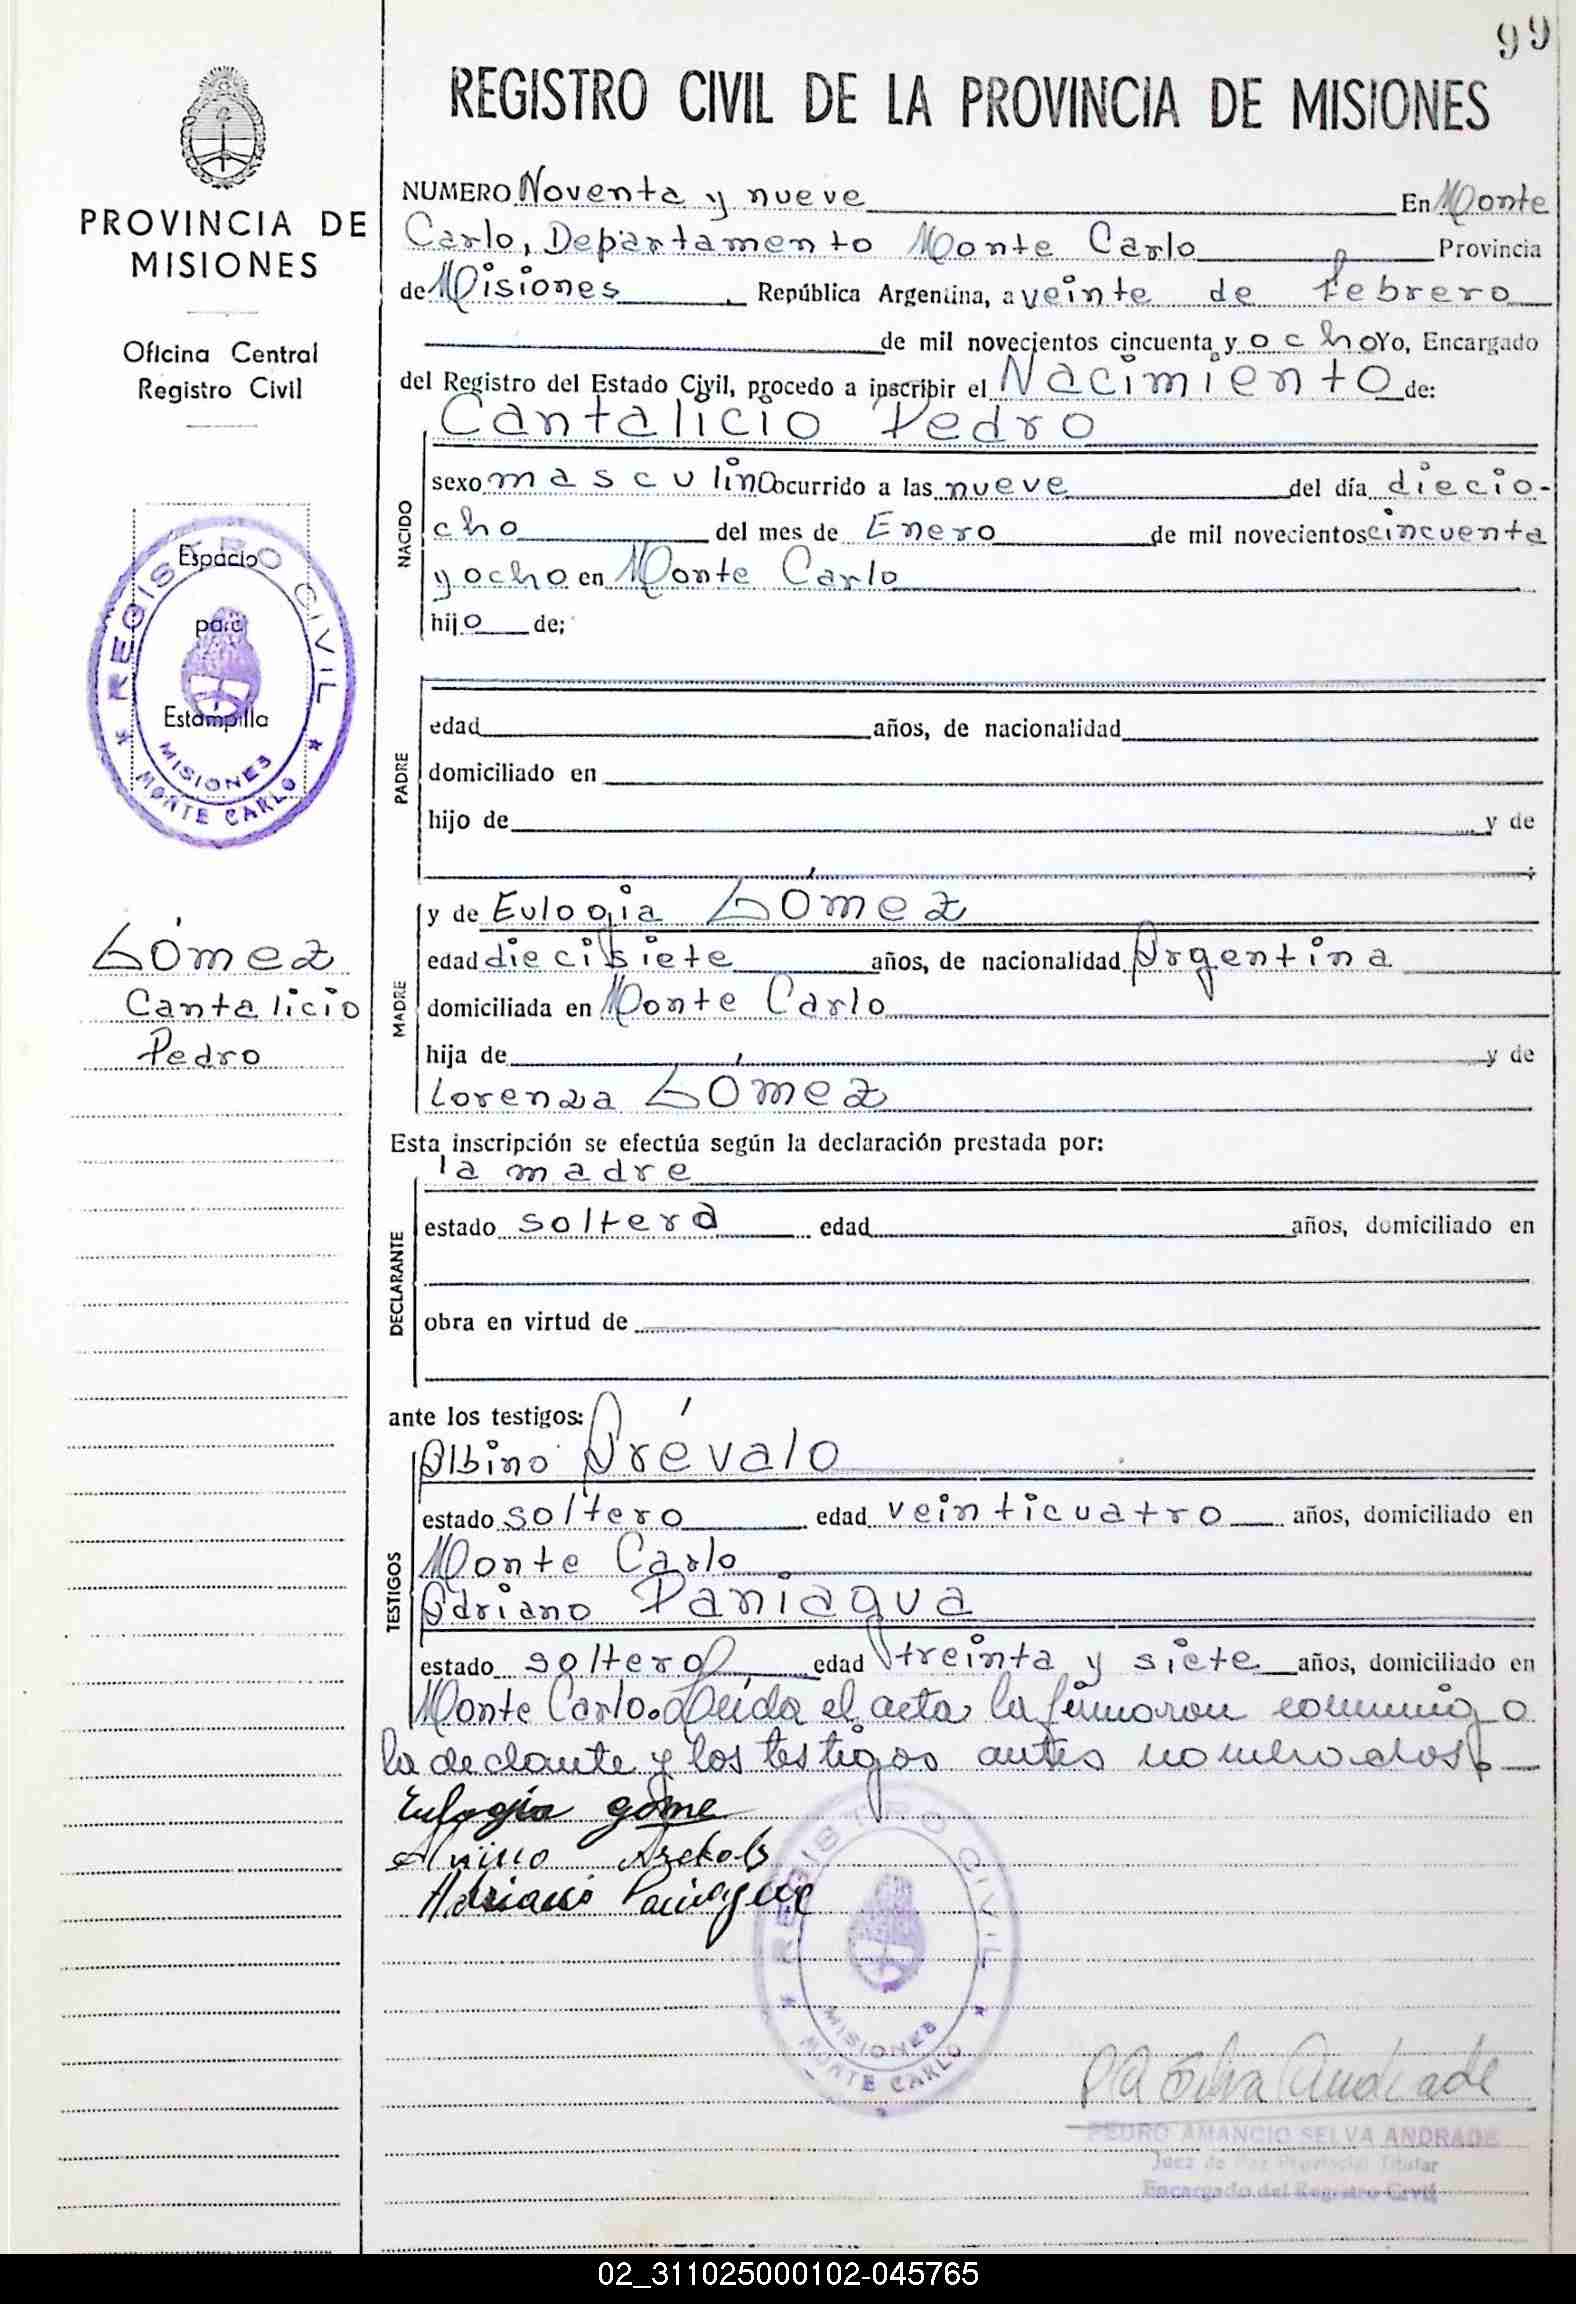 99
REGISTRO CIVIL DE LA PROVINCIA DE MISIONES
PROVINCIA DE
MISIONES
Oficina Central
Registro Civil
Espacio
para
Estampilla
REGISTRO CIVIL
MISIONES
MONTE CARLO
Gómez
Cantalicio
Pedro
NUMERO Noventa y nueve En Monte
Carlo, Departamento Monte Carlo Provincia
de Misiones, República Argentina, a veinte de Febrero
de mil novecientos cincuenta y ocho Yo, Encargado
del Registro del Estado Civil, procedo a inscribir el Nacimiento de:
Cantalicio Pedro
NACIDO
sexo masculino ocurrido a las nueve del día diecio-
cho del mes de Enero de mil novecientos cincuenta
y ocho en Monte Carlo
hijo de;
PADRE
edad años, de nacionalidad
domiciliado en
hijo de y de
;
MADRE
y de Eulogia Gómez
edad diecisiete años, de nacionalidad Argentina
domiciliada en Monte Carlo
hija de y de
Lorenza Gómez
Esta inscripción se efectúa según la declaración prestada por:
la madre
DECLARANTE
estado soltera edad años, domiciliado en
obra en virtud de
ante los testigos:
TESTIGOS
Albino Arévalo
estado soltero edad veinticuatro años, domiciliado en
Monte Carlo
Adriano Paniagua
estado soltero edad treinta y siete años, domiciliado en
Monte Carlo. Leída el acta la firmaron conmigo
la declante y los testigos antes nombrados.
Eulogia gome
Adriano Paniagua
REGISTRO CIVIL
MISIONES
MONTE CARLO
P A Selva Andrade
PEDRO AMANCIO SELVA ANDRADE
Juez de Paz Provincial Titular
Encargado del Registro Civil
02_311025000102-045765